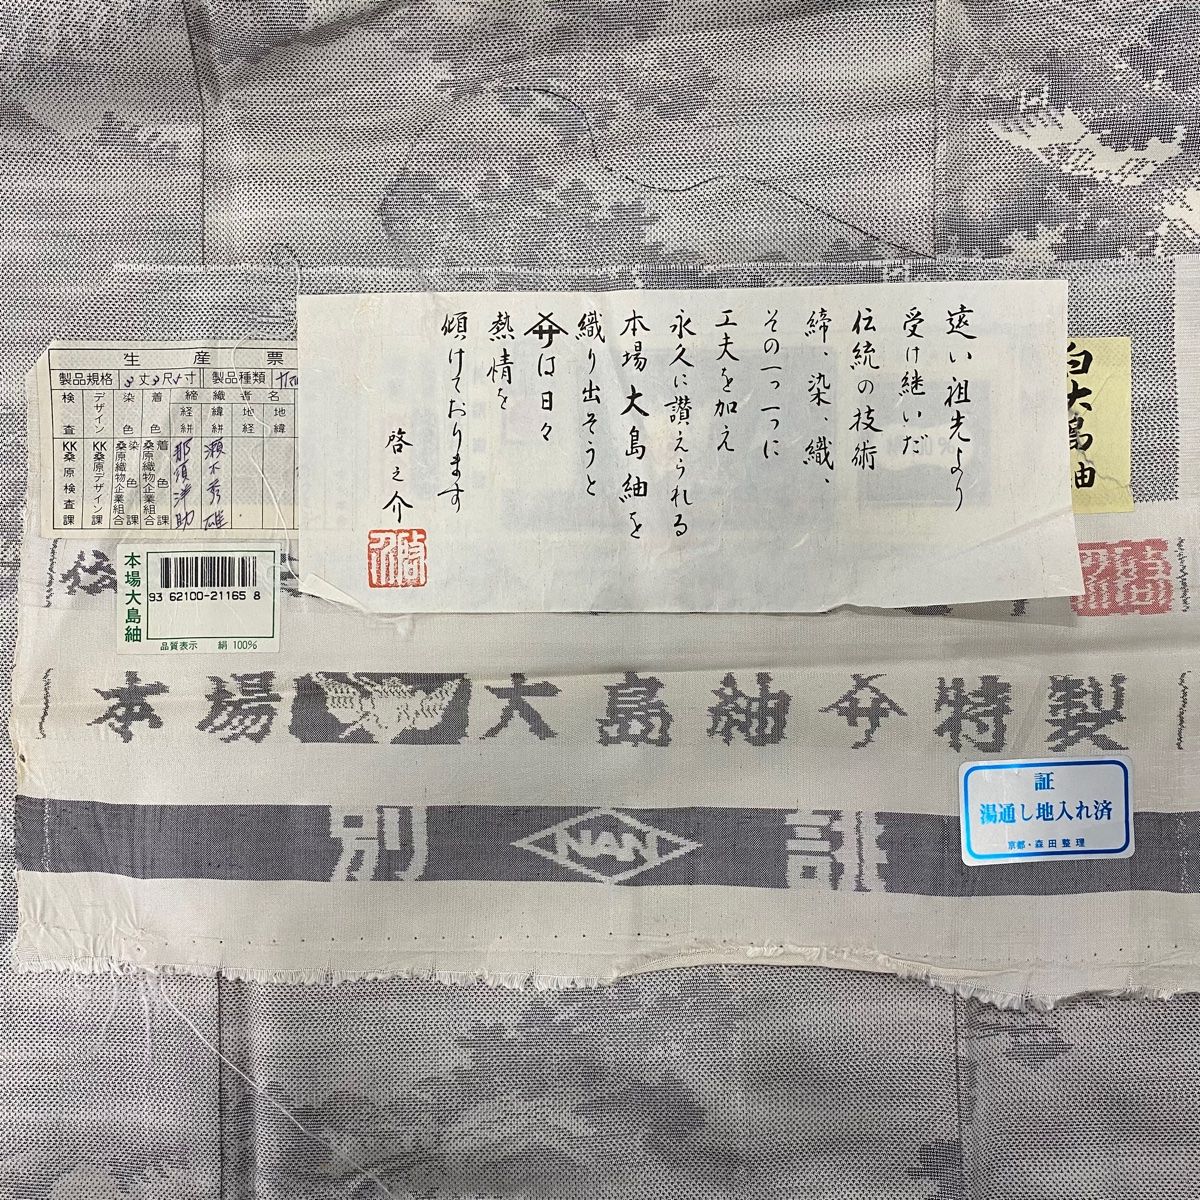 遠い祖先より
受け継いだ
伝統の技術
締、染、織、
その一つ一つに
工夫を加え
永久に讃えられる
本場大島紬を
織り出そうと
は日々
熱情を
傾けております
啓之介
白大島紬
生産票
製品規格 丈 尺 寸 製品種類
検査
デザイン
染色
着色
締織者名
経絣
緯絣
地経
地緯
KK桑原検査課
KK桑原デザイン課
桑原織物企業組合 染色課
桑原織物企業組合 着色課
那須洋助
瀬木秀雄
本場大島紬
93 62100-21165 8
品質表示 絹 100%
伝
本場大島紬 特製
証
湯通し地入れ済
京都・森田整理
別 NAN 誂